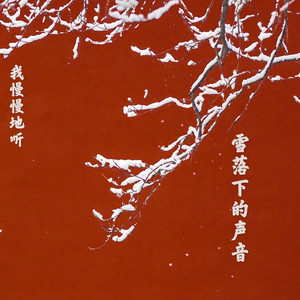 我慢慢地听
雪落下的声音